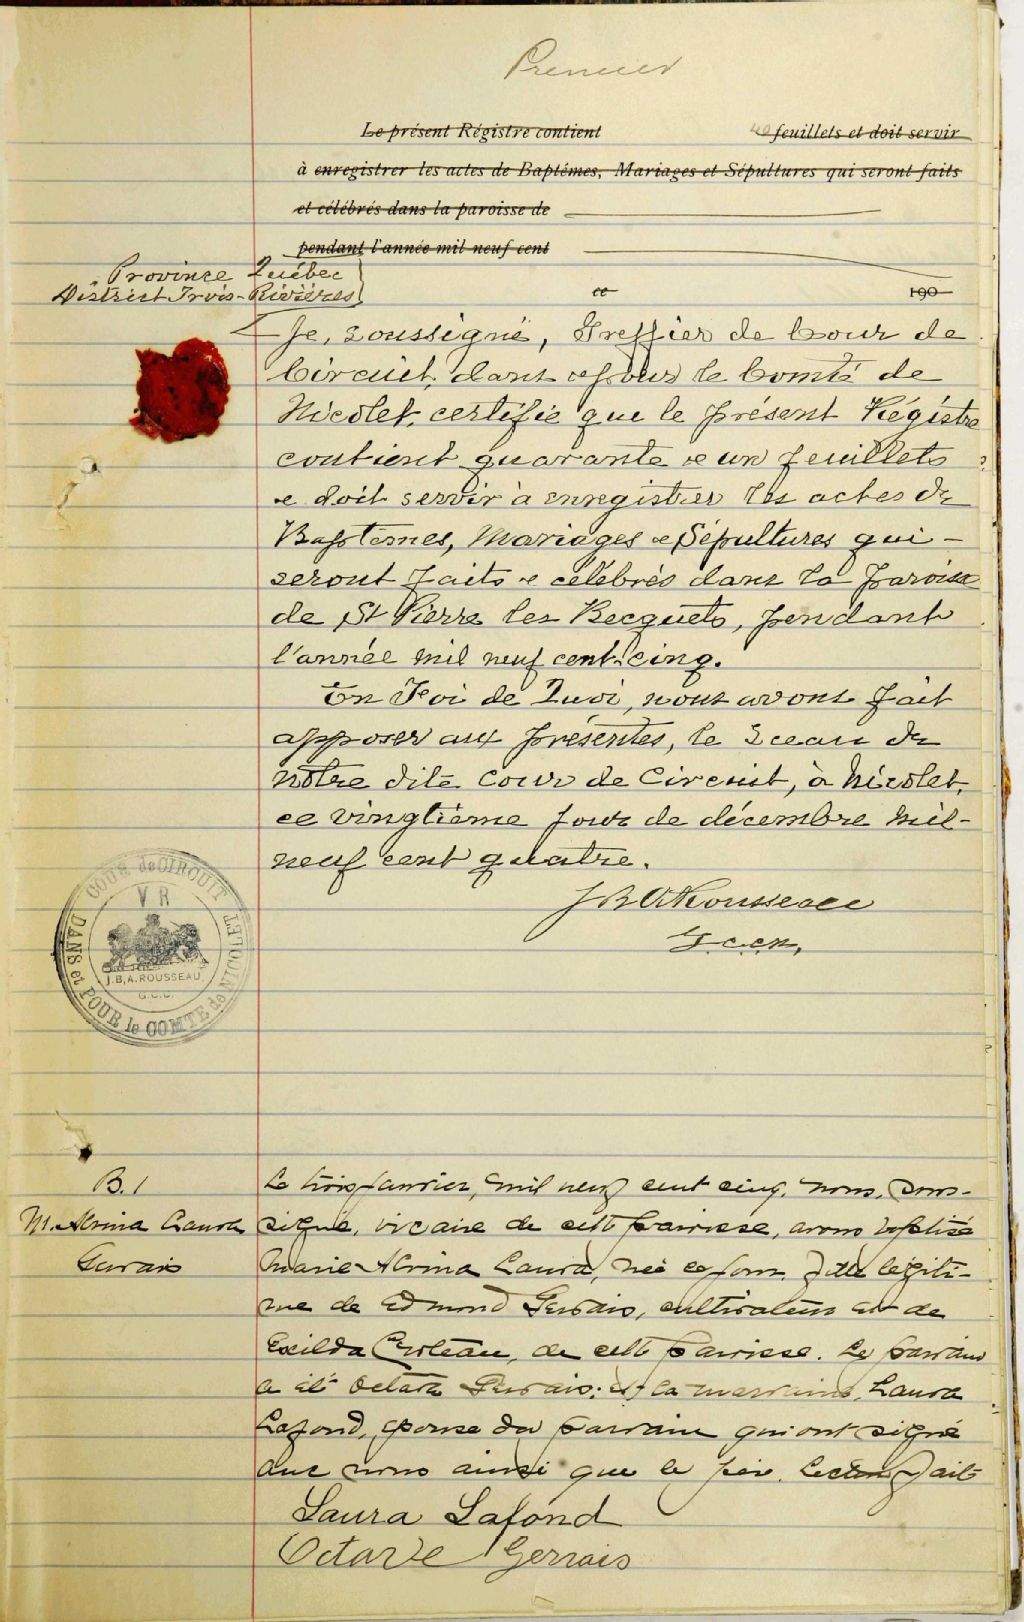 Premier
Le présent Régistre contient 40 feuillets et doit servir
à enregistrer les actes de Baptêmes, Mariages et Sépultures qui seront faits
et célébrés dans la paroisse de
pendant l'année mil neuf cent
Province Québec
District Trois-Rivières
ce 190
Je, soussigné, Greffier de Cour de
Circuit, dans et pour le Comté de
Nicolet, certifie que le présent Régistre
contient quarante & un feuillets
& doit servir à enregistrer les actes de
Baptêmes, Mariages & Sépultures qui -
seront faits & célébrés dans la paroisse
de St Pierre les Becquets, pendant
l'année mil neuf cent-cinq.
En Foi de Quoi, nous avons fait
apposer aux présentes, le sceau de
notre dite Cour de Circuit, à Nicolet,
ce vingtième jour de décembre mil-
neuf cent quatre.
J B A Rousseau
G.C.C.N.
COUR de CIRCUIT
DANS et POUR le COMTÉ de NICOLET
V R
J.B.A. ROUSSEAU
G.C.C.
B. 1
M. Alvina Laura
Gervais
Le trois janvier, mil neuf cent cinq, nous, sous-
signé, vicaire de cette paroisse, avons baptisé
Marie Alvina Laura, née ce jour, fille légiti-
me de Edmond Gervais, cultivateur et de
Exilda Croteau, de cette paroisse. Le parrain
a été Octave Gervais; et la marraine, Laura
Lafond, épouse du parrain qui ont signé
avec nous ainsi que le père. Lecture faite
Laura Lafond
Octave Gervais